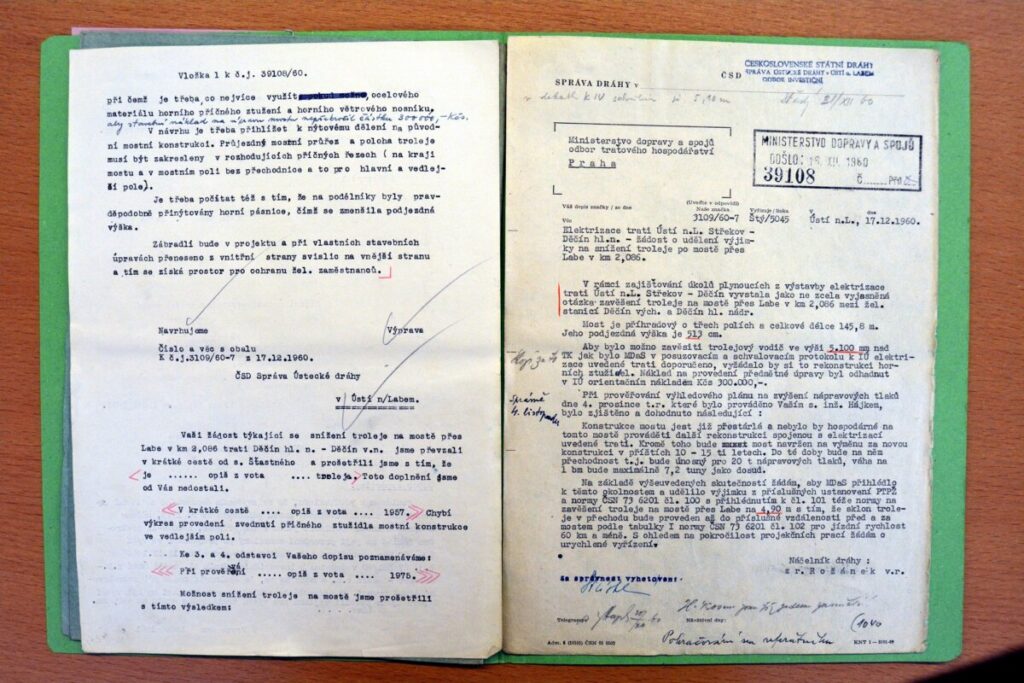 Vložka 1 k č.j. 39108/60.
při čemž je třeba co nejvíce využít ocelového
materiálu horního příčného ztužení a horního větrového nosníku,
aby stavební náklad na úpravu mostu nepřekročil částku 300.000,- Kčs.
V návrhu je třeba přihlížet k nýtovému dělení na původ-
ní mostní konstrukci. Průjezdný mostní průřez a poloha troleje
musí být zakresleny v rozhodujících příčných řezech ( na kraji
mostu a v mostním poli bez přechodnice a to pro hlavní a vedlej-
ší pole).
Je třeba počítat též s tím, že na podélníky byly prav-
děpodobně přinýtovány horní pásnice, čímž se změnila podjezdná
výška.
Zábradlí bude v projektu a při vlastních stavebních
úpravách přeneseno z vnitřní strany svislic na vnější stranu
a tím se získá prostor pro ochranu žel. zaměstnanců.
Navrhujeme Výprava
Číslo a věc s obalu
K č.j.3109/60-7 z 17.12.1960.
ČSD Správa Ústecké dráhy
v Ústí n/Labem.
Vaši žádost týkající se snížení troleje na mostě přes
Labe v km 2,086 trati Děčín hl. n. - Děčín v.n. jsme převzali
v krátké cestě od s. Šťastného a prošetřili jsme z tím, že
je ...... opiš z vota .... troleje. Toto doplnění jsme
od Vás nedostali.
V krátké cestě .... opiš z vota .... 1957. Chybí
výkres provedení zvednutí příčného ztužidla mostní konstrukce
ve vedlejším poli.
Ke 3. a 4. odstavci Vašeho dopisu poznamenáváme:
Při prověření ..... opiš z vota .... 1975.
Možnost snížení troleje na mostě jsme prošetřili
s tímto výsledkem:
ČESKOSLOVENSKÉ STÁTNÍ DRÁHY
SPRÁVA ÚSTECKÉ DRÁHY V ÚSTÍ n. LABEM
ODBOR INVESTIČNÍ
SPRÁVA DRÁHY v ČSD
Ministerstvo dopravy a spojů
odbor tratového hospodářství
Praha
MINISTERSTVO DOPRAVY A SPOJŮ
DOŠLO: XII. 1960
39108 Č. Příl.
Váš dopis značky / ze dne
(Uveďte v odpovědi)
Naše značka Vyřizuje / linka dne
3109/60-7 Štý/5045 Ústí n.L., 17.12.1960.
Věc
Elektrizace trati Ústí n.L. Střekov -
Děčín hl.n. - žádost o udělení výjim-
ky na snížení troleje po mostě přes
Labe v km 2,086.
V rámci zajišťování úkolů plynoucích z výstavby elektrizace
trati Ústí n.L. Střekov - Děčín vyvstala jako ne zcela vyjasněná
otázka zavěšení troleje na mostě přes Labe v km 2,086 mezi žel.
stanicí Děčín vých. a Děčín hl. nádr.
Most je příhradový o třech polích a celkové délce 145,8 m.
Jeho podjezdná výška je 513 cm.
Aby bylo možno zavěsiti trolejový vodič ve výši 5.100 mm nad
TK jak bylo MDaS v posuzovacím a schvalovacím protokolu k IÚ elektri-
zace uvedené trati doporučeno, vyžádalo by si to rekonstrukci hor-
ních ztužidel. Náklad na provedení předmětné úpravy byl odhadnut
v IÚ orientačním nákladem Kčs 300.000,-.
Při prověřování výhledového plánu na zvýšení nápravových tlaků
dne 4. prosince t.r. které bylo prováděno Vaším s. inž. Hájkem,
bylo zjištěno a dohodnuto následující :
Správně
4. listopadu
Konstrukce mostu jest již přestárlá a nebylo by hospodárné na
tomto mostě prováděti další rekonstrukci spojenou s elektrizací
uvedené trati. Kromě toho bude most navržen na výměnu za novou
konstrukci v příštích 10 - 15 ti letech. Do té doby bude na něm
přechodnost t.j. bude únosný pro 20 t nápravových tlaků, váha na
1 bm bude maximálně 7,2 tuny jako dosud.
Na základě výšeuvedených skutečností žádám, aby MDaS přihlédlo
k těmto okolnostem a udělilo výjimku z příslušných ustanovení PTPŽ
a normy ČSN 73 6201 čl. 100 s přihlédnutím k čl. 101 téže normy na
zavěšení troleje na mostě přes Labe na 4,90 m s tím, že sklon trole-
je v přechodu bude proveden až do příslušné vzdálenosti před a za
mostem podle tabulky I normy ČSN 73 6201 čl. 102 pro jízdní rychlost
60 km a méně. S ohledem na pokročilost projekčních prací žádám o
urychlené vyřízení.
Náčelník dráhy :
z r. Rožánek v.r.
Za správnost vyhotovení:
Telegramy: Ná-štivní dny:
Pokračování na referátníku
(1040